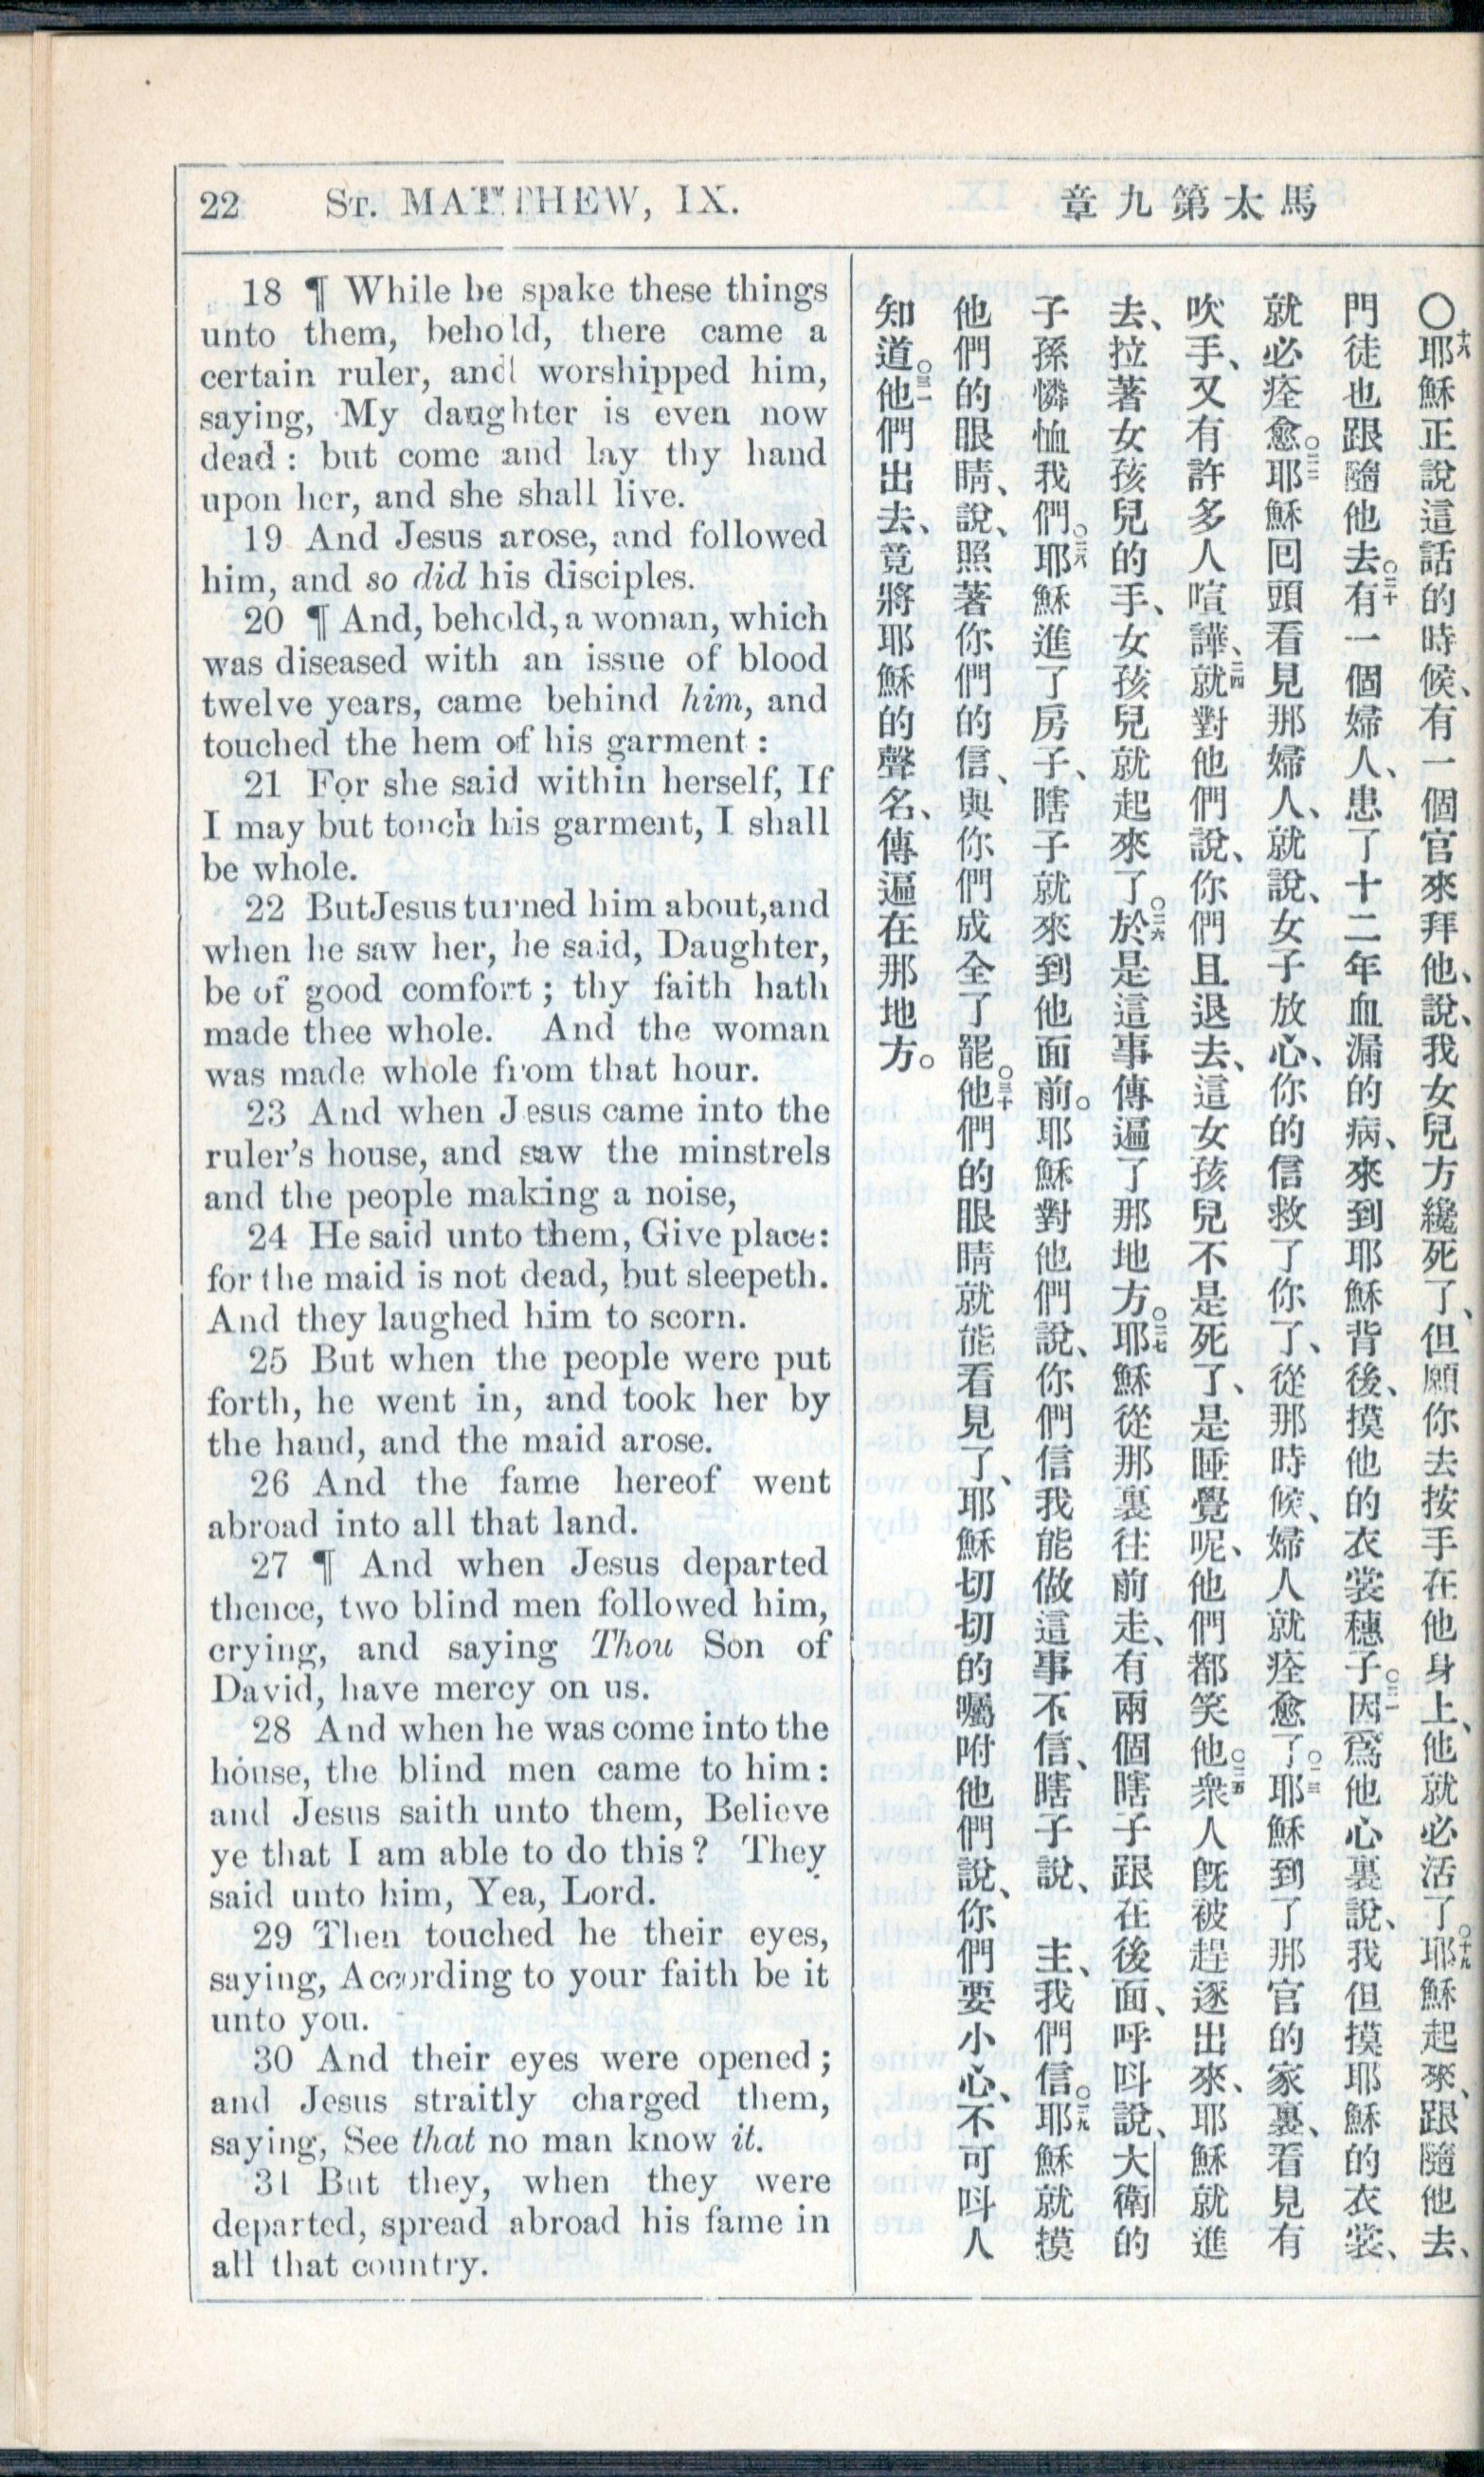 22 ST. MATTHEW, IX.
馬太第九章
18 ¶ While he spake these things
unto them, behold, there came a
certain ruler, and worshipped him,
saying, My daughter is even now
dead: but come and lay thy hand
upon her, and she shall live.
19 And Jesus arose, and followed
him, and so did his disciples.
20 ¶ And, behold, a woman, which
was diseased with an issue of blood
twelve years, came behind him, and
touched the hem of his garment:
21 For she said within herself, If
I may but touch his garment, I shall
be whole.
22 But Jesus turned him about, and
when he saw her, he said, Daughter,
be of good comfort; thy faith hath
made thee whole. And the woman
was made whole from that hour.
23 And when Jesus came into the
ruler's house, and saw the minstrels
and the people making a noise,
24 He said unto them, Give place:
for the maid is not dead, but sleepeth.
And they laughed him to scorn.
25 But when the people were put
forth, he went in, and took her by
the hand, and the maid arose.
26 And the fame hereof went
abroad into all that land.
27 ¶ And when Jesus departed
thence, two blind men followed him,
crying, and saying Thou Son of
David, have mercy on us.
28 And when he was come into the
house, the blind men came to him:
and Jesus saith unto them, Believe
ye that I am able to do this? They
said unto him, Yea, Lord.
29 Then touched he their eyes,
saying, According to your faith be it
unto you.
30 And their eyes were opened;
and Jesus straitly charged them,
saying, See that no man know it.
31 But they, when they were
departed, spread abroad his fame in
all that country.
〇十八耶穌正說這話的時候、有一個官來拜他、說、我女兒方纔死了、但願你去按手在他身上、他就必活了。十九耶穌起來、跟隨他去、
門徒也跟隨他去。二十有一個婦人、患了十二年血漏的病、來到耶穌背後、摸他的衣裳穗子。二一因爲他心裏說、我但摸耶穌的衣裳、
就必痊愈。二二耶穌囘頭看見那婦人、就說、女子放心、你的信救了你了、從那時候、婦人就痊愈了。二三耶穌到了那官的家裏、看見有
吹手、又有許多人喧譁、二四就對他們說、你們且退去、這女孩兒不是死了、是睡覺呢、他們都笑他。二五衆人旣被趕逐出來、耶穌就進
去、拉著女孩兒的手、女孩兒就起來了。二六於是這事傳遍了那地方。二七耶穌從那裏往前走、有兩個瞎子跟在後面、呼呌說、大衛的
子孫憐恤我們。二八耶穌進了房子、瞎子就來到他面前。耶穌對他們說、你們信我能做這事不信、瞎子說、主、我們信。二九耶穌就摸
他們的眼睛、說、照著你們的信、與你們成全了罷。三十他們的眼睛就能看見了、耶穌切切的囑咐他們說、你們要小心、不可呌人
知道。三一他們出去、竟將耶穌的聲名、傳遍在那地方。